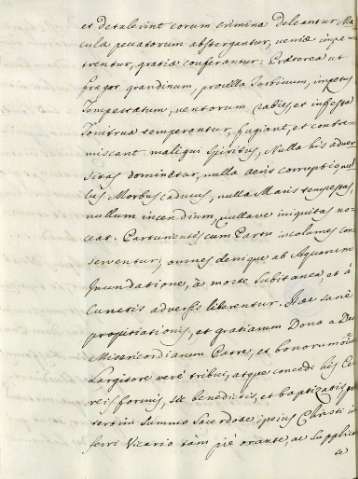 et detulerint eorum crimina deleantur, Ma
cula pecatorum abstergantur, veniæ impe
trentur, gratiæ conferantur: Præterea ut
fragor grandinum, procella Turbinum, impetus
Tempestatum, ventorum rabies, et infesta
Tonitrua temperantur, fugiant, et contre
miscant maligni Spiritus, Nulla his adver
sitas dominetur, nulla aeris corruptio, nul
lus Morbus caducus, nulla Maris tempestas,
nullum incendium, nullave iniquitas no
ceat. Parturientes cum Partu incolumes con
serventur; omnes denique ab Aquarum
Inundatione, à morte Subitanea, et à
cunctis adversis liberentur. Hæc sane
propitiationis, et gratiarum Dona a Deo
Misericordiarum Patre, et bonorum
Largitore vere tribui, atque concedi his Ce
reis formis, sic benedictis, et baptizatis
Summo Sacerdote, ipsius Christi in
terris Vicario tam pié orante, ac Supplic